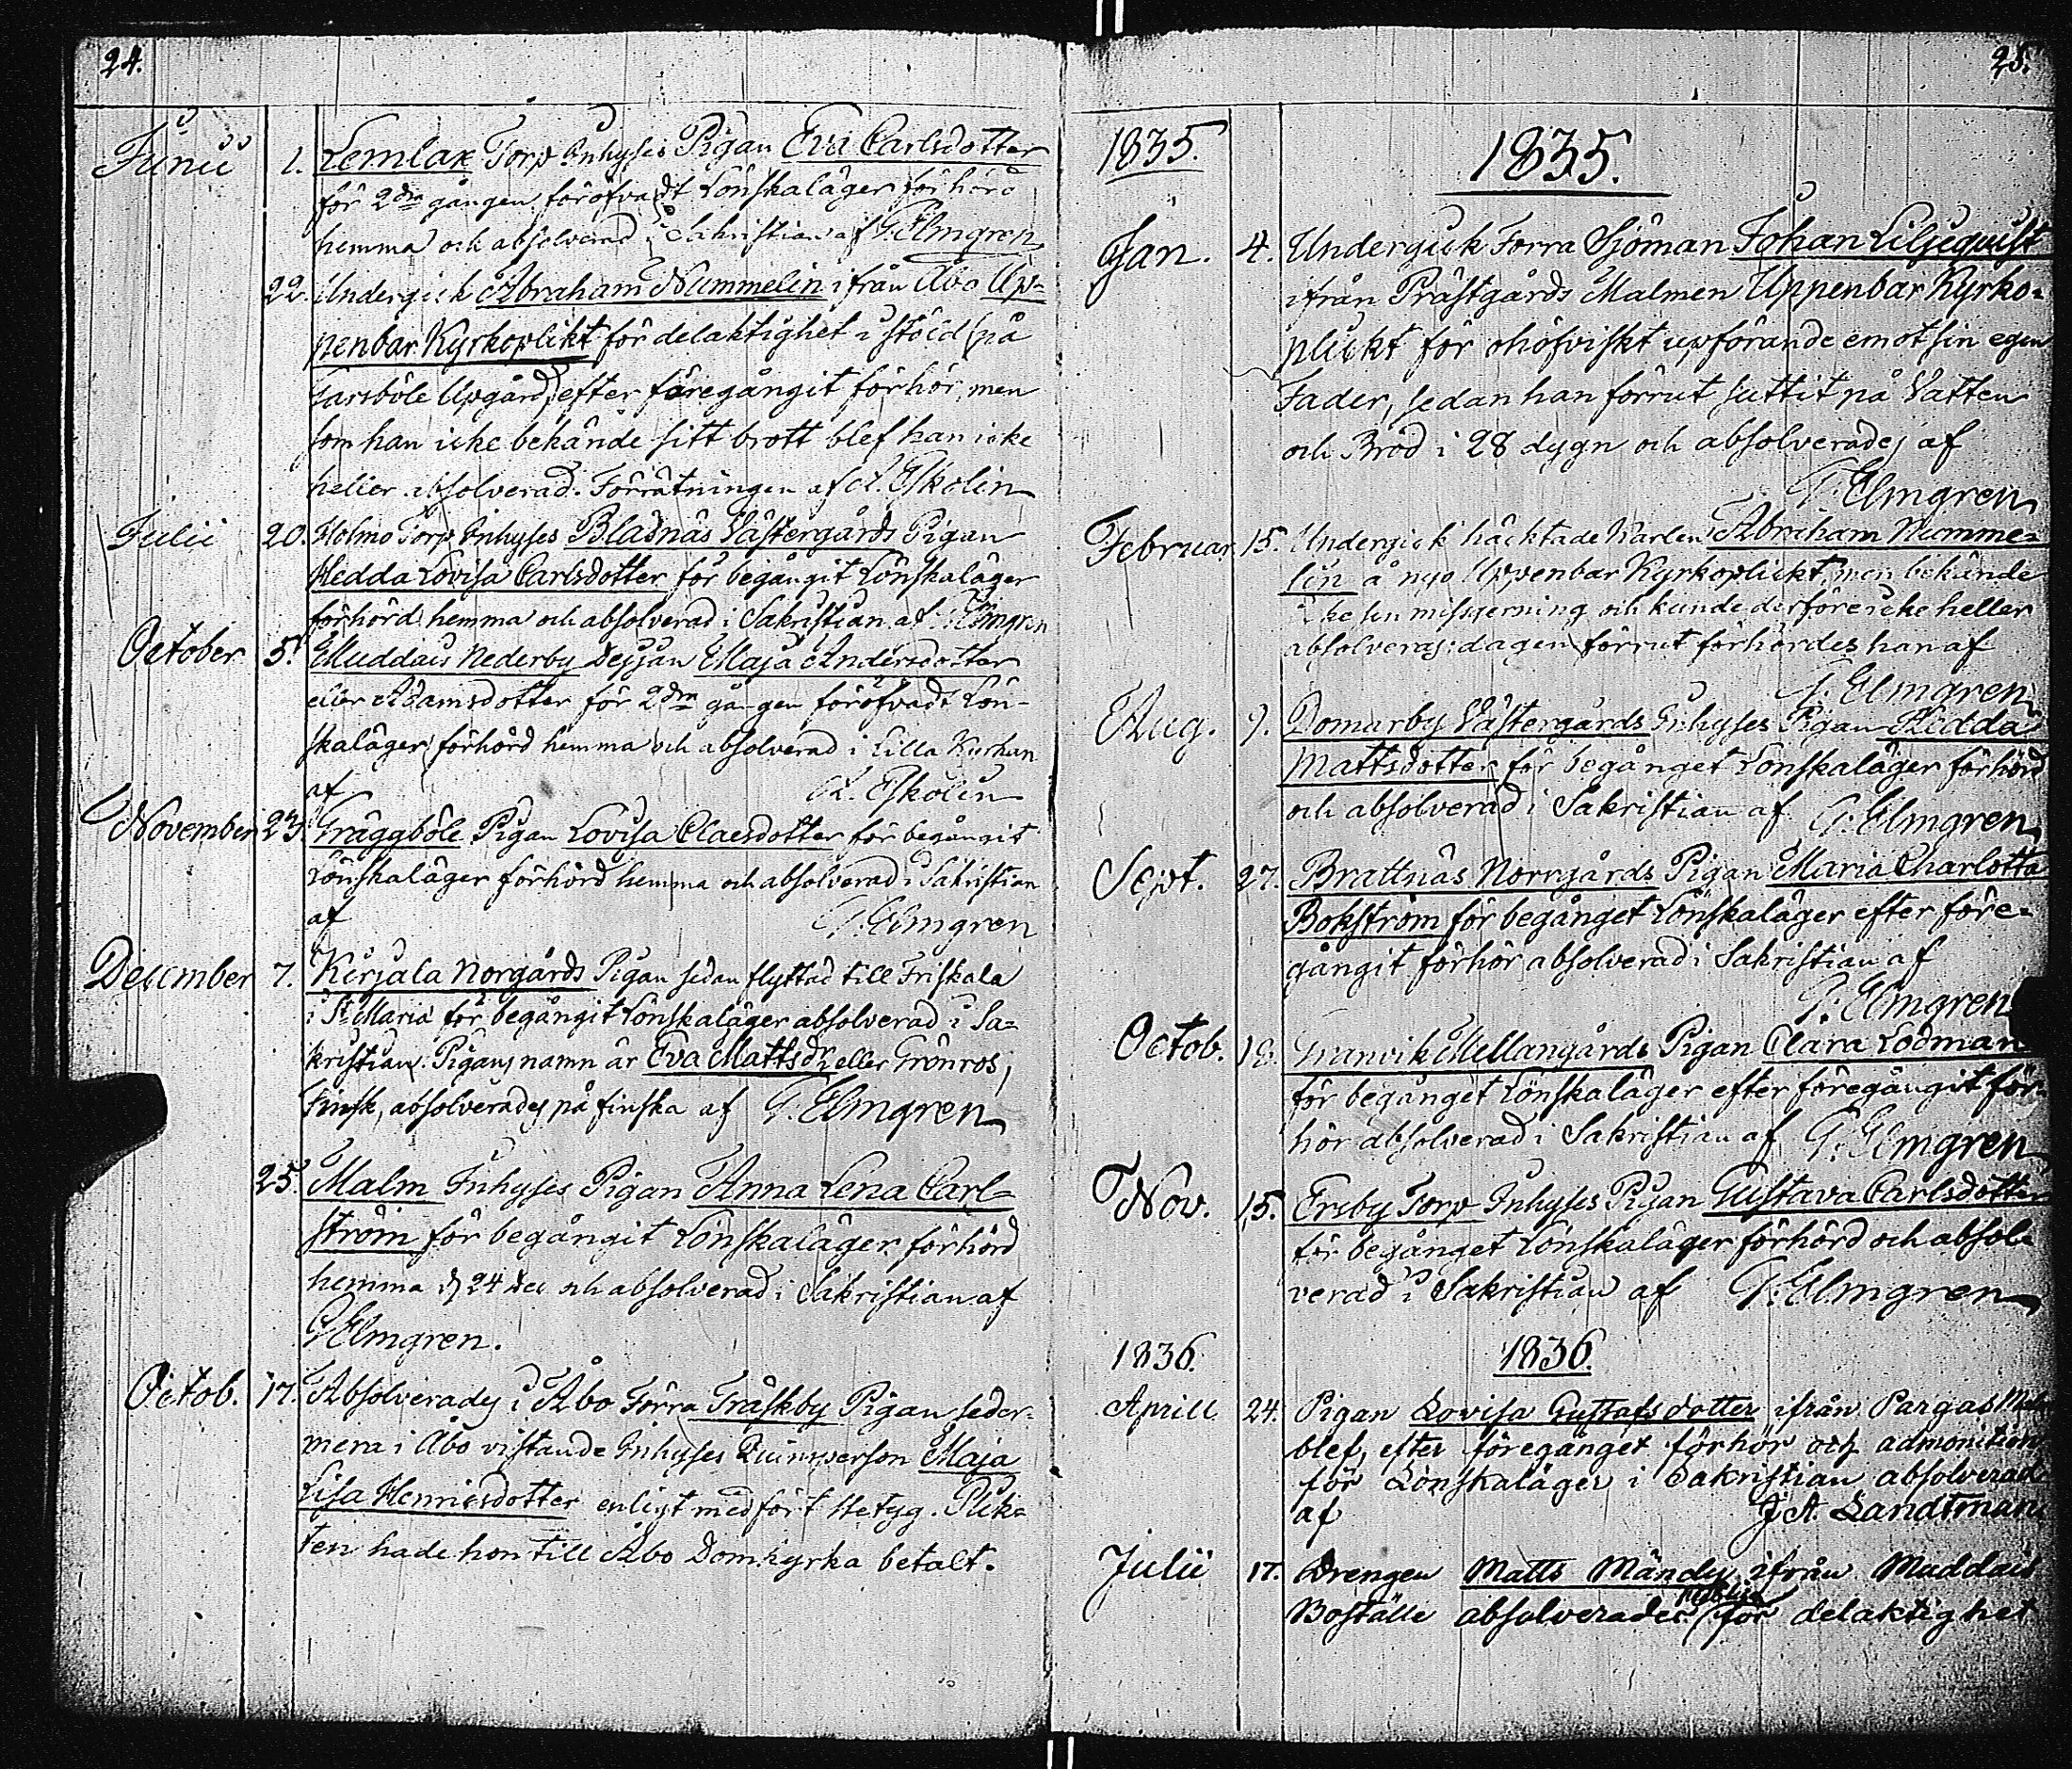 24.
Junii 1. Lemlax Torp Inhyses Pigan Eva Carlsdotter
för 2dra gången föröfvadt Lönskaläger förhörd
hemma och absolverad i Sakristian af G. Elmgren
22. Undergick Abraham Nummelin ifrån Åbo Up-
penbar Kyrkoplikt för delaktighet i stöld (på
Larsböle Upgård) efter föregångit förhör, men
som han icke bekände sitt brott blef han icke
heller absolverad. Förrätningen af A. Eskolin
Julii 20. Holmo Torp Inhyses Bladnäs Västergårds Pigan
Hedda Lovisa Carlsdotter för begångit Lönskaläger
förhörd hemma och absolverad i Sakristian af G. Elmgren
October 5. Muddais Nederby Dejjan Maja Andersdotter
eller Adamsdotter för 2dra gången föröfvadt Lön-
skaläger förhörd hemma och absolverad i Lilla Kyrkan
af A. Eskolin
November 23. Gräggböle Pigan Lovisa Claesdotter för begångit
Lönskaläger förhörd hemma och absolverad i Sakristian
af G. Elmgren
December 7. Kirjala Norgårds Pigan sedan flyttad till Friskala
i St Maria för begångit Lönskaläger absolverad i Sa-
kristian. Pigans namn är Eva Mattsdr eller Grönros,
Finsk, absolverades på finska af G. Elmgren
25. Malm Inhyses Pigan Anna Lena Carl-
ström för begångit Lönskaläger förhörd
hemma d 24 Dec och absolverad i Sakristian af
G Elmgren.
Octob. 17. Absolverades i Åbo Förra Träskby Pigan seder-
mera i Åbo vistande Inhyses Qvinnperson Maja
Lisa Henricsdotter enligt medfört Betyg. Plik-
ten hade hon till Åbo Domkyrka betalt.
25.
1835. 1835.
Jan. 4. Undergick Forra Sjöman Johan Liljeqvist
ifrån Prästgårds Malmen Uppenbar Kyrko-
plickt för ohöfviskt upförande emot sin egen
Fader, sedan han förrut suttit på Vatten
och Bröd i 28 dygn och absolverades af
G. Elmgren
Februar. 15. Undergick häcktade Karlen Abraham Numme-
lin å nyo Uppenbar Kyrkoplickt, men bekände
icke sin missgerning och kunde derföre icke heller
absolveras: dagen förrut förhördes han af
G. Elmgren
Aug. 9. Domarby Västergårds Inhyses Pigan Hedda
Mattsdotter för begånget Lönskaläger förhörd
och absolverad i Sakristian af G. Elmgren
Sept. 27. Brattnäs Norrgårds Pigan Maria Charlotta
Bokström för begånget Lönskaläger efter före-
gångit förhör absolverad i Sakristian af
G. Elmgren
Octob. 18. Granvik Mellangårds Pigan Clara Lodman
för begånget Lönskaläger efter föregångit för-
hör absolverad i Sakristian af G. Elmgren
Nov. 15. Ersby Torp Inhyses Pigan Gustava Carlsdotter
för begånget Lönskaläger förhörd och absol-
verad i Sakristian af G. Elmgren
1836. 1836.
Aprill 24. Pigan Lovisa Gustafsdotter ifrån Pargas
blef, efter föregånget förhör och admonition
för Lönskaläger i Sakristian absolverad
af J. A. Landtman
Julii 17. Drengen Matts Mändy ifrån Muddais
Boställe absolverades för delaktighet